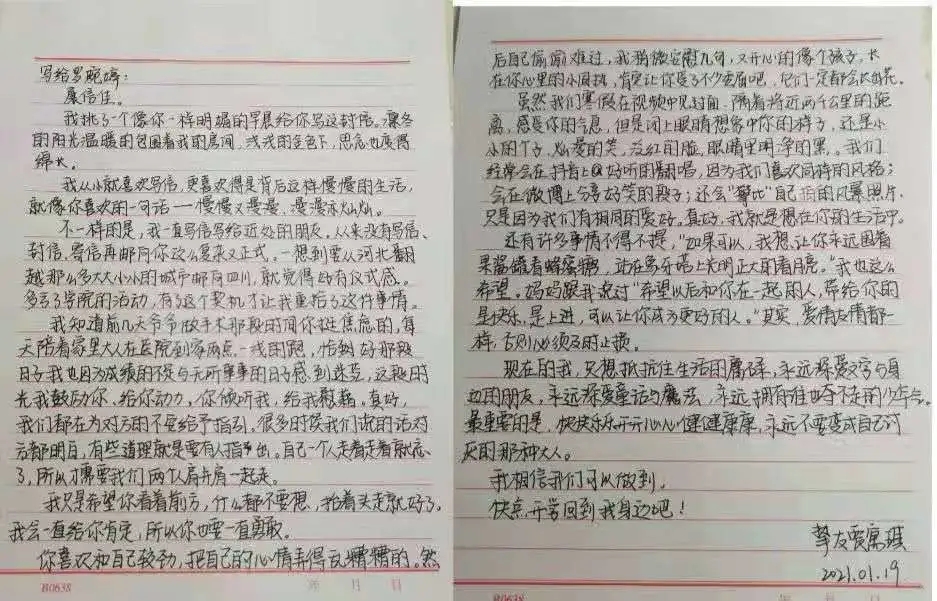 写给罗婉婷：
展信佳。
我挑了个像你一样明媚的早晨给你写这封信。凛冬
的阳光温暖的包围着我的房间，浅浅的金色下，思念也变得
绵长。
我从小就喜欢写信，更喜欢得是背后这样慢慢的生活，
就像你喜欢的一句话——慢慢又漫漫，漫漫亦灿灿。
不一样的是，我一直写信写给近处的朋友。从来没有写信、
封信、寄信再邮寄你这么复杂又正式。一想到要从河北翻
越那么多大大小小的城市邮向四川，就觉得好有仪式感。
多亏了学院的活动，有了这个契机才让我重拾了这件事情。
我知道前几天爷爷做手术那段时间你挺焦虑的，每
天陪着家里大人在医院到家两点一线的跑，恰好那段
日子我也因为成绩的不佳与无所事事的日子感到迷茫，这段时
光我鼓励你、给你动力，你倾听我、给我慰藉。真好，
我们都在为对方的不安给予指引。很多时候我们说的话对
方都明白，有些道理就是要有人指出。自己一个人走着走着就忘
了，所以才需要我们两个人肩并肩一起走。
我只是希望你看着前方，什么都不要想，抬着头走就好了。
我会一直给你肯定，所以你也要一直勇敢。
你喜欢和自己较劲，把自己的心情弄得乱糟糟的。然
B0638
年 月 日
后自己偷偷难过，我稍微安慰几句，又开心的像个孩子，长
在你心里的小雏菊，肯定让你受了不少委屈吧，它们一定都会长出花。
虽然我们寒假在视频中见过面，隔着将近两千公里的距
离，感受你的气息，但是闭上眼睛想象中你的样子，还是小
小的个子，灿漫的笑，泛红的脸，眼睛里明净的黑。我们
经常会在抖音上@好听的翻唱，因为我们喜欢同样的风格；
会在微博上分享好笑的段子；还会"攀比"自拍的风景照片，
只是因为我们有相同的爱好。真好，我就是想在你的生活中。
还有许多事情不得不提，"如果可以，我想让你永远围着
果酱罐看蜂蜜糖，站在象牙塔上光明正大的看月亮。"我也这么
希望。妈妈跟我说过"希望以后和你在一起的人，带给你的
是快乐，是上进，可以让你成为更好的人。"其实，爱情友情都一
样，否则必须及时止损。
现在的我，只想抵抗住生活的磨砺，永远深爱文字与身
边的朋友，永远深爱童话与魔法，永远拥有谁也夺不走的少年气。
最重要的是，快快乐乐开开心心健健康康，永远不要变成自己讨
厌的那种大人。
我相信我们可以做到。
快点开学回到我身边吧！
挚友贾寓琪
2021.01.19
年 月 日